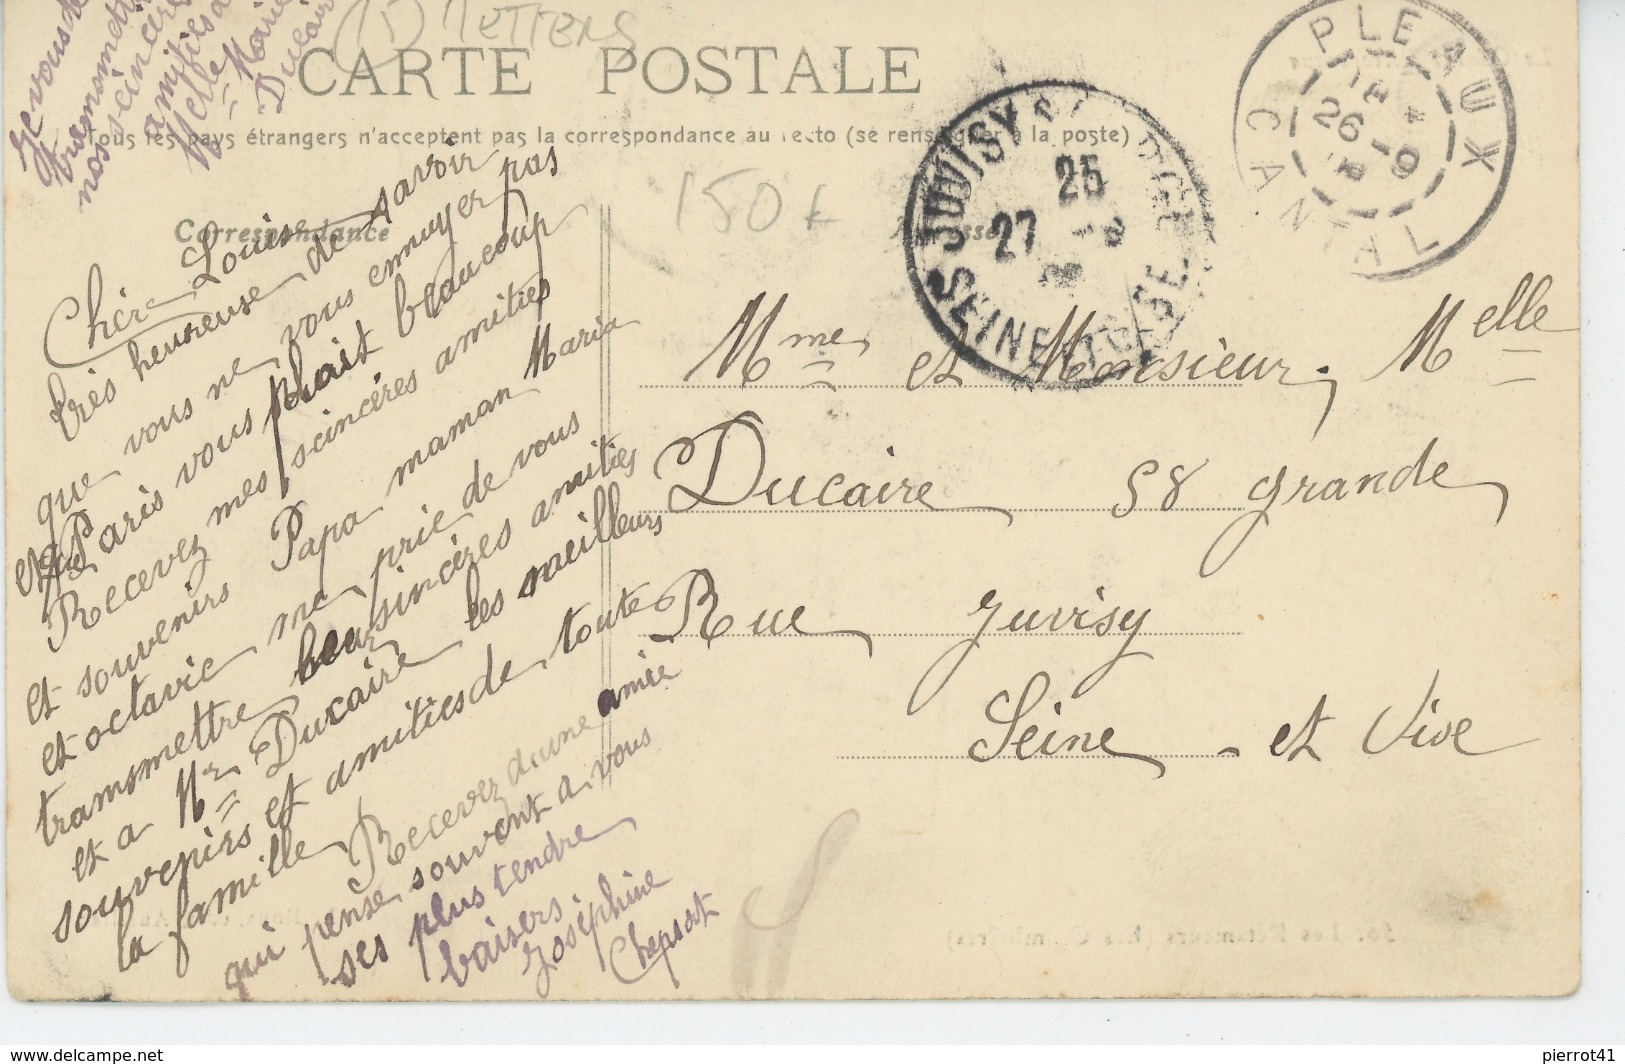 Je vous
transmet
nos sincères
amitiés
Melle Marie
Ducaire
(1) METIERS
CARTE POSTALE
Tous les pays étrangers n'acceptent pas la correspondance au recto (se renseigner à la poste)
Correspondance
150 F
JUVISY S/ ORGE
25
27 -9
SEINE-ET-OISE
PLEAUX
26 -9
CANTAL
Chèr Louis
très heureuse de savoir
que vous ne vous ennuyer pas
et que Paris vous plait beaucoup
Recevez mes scincéres amities
et souvenirs Papa maman Maria
et octavie me prie de vous
transmettre leur sincères amities
et a Mr Ducaire les meilleurs
souvenirs et amities de toute
la famille Recevez d'une amie
qui pense souvent a vous
ses plus tendre
baisers
Joséphine
Chepsat
Mme et Monsieur, Melle
Ducaire 58 grande
Rue Juvisy
Seine - et Oise
56. Les Rétameurs (Les
pierrot41
www.delcampe.net